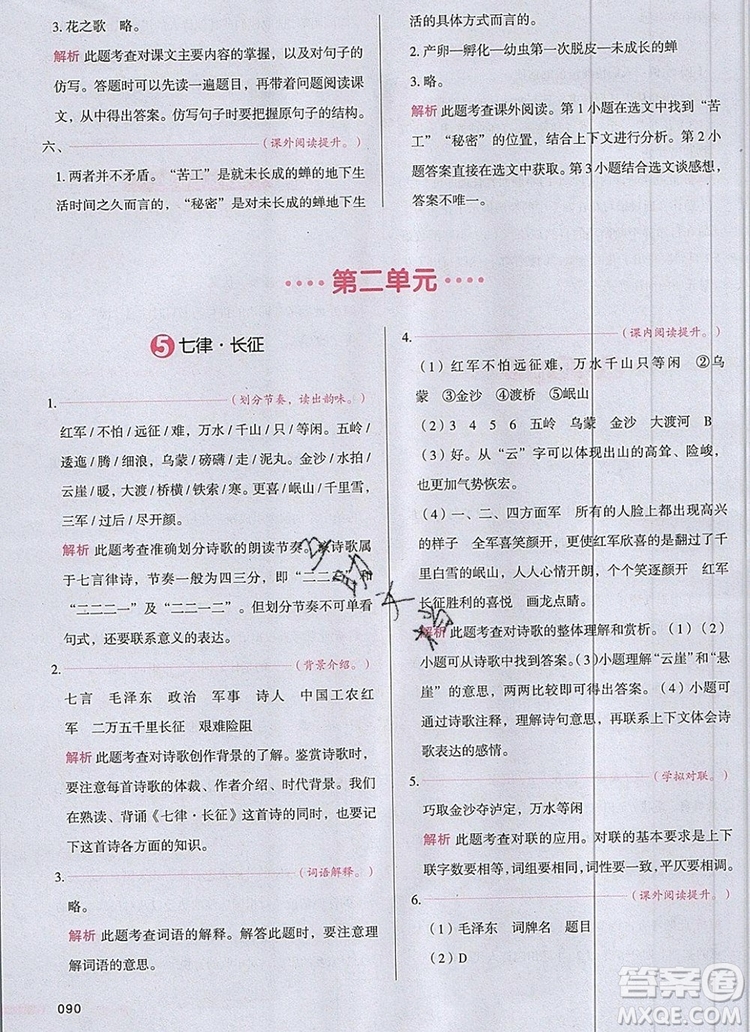 3. 花之歌　略。
解析 此题考查对课文主要内容的掌握，以及对句子的
仿写。答题时可以先读一遍题目，再带着问题阅读课
文，即可得出答案。仿写句子时要把握原句子的结构。
六、（课外阅读提升。）
1. 两者并不矛盾。“苦工”是就未长成的蝉的地下生
活时间之久而言的，“秘密”是对未长成的蝉的地下生
活的具体方式而言的。
2. 产卵—孵化—幼虫第一次脱皮—未成长的蝉
3. 略。
解析 此题考查课外阅读。第 1 小题在选文中找到“苦
工”“秘密”的位置，结合上下文进行分析。第 2 小
题答案直接在选文中获取。第 3 小题结合选文谈感想，
答案不唯一。
第二单元
5 七律·长征
1.（划分节奏，读出韵味。）
红军/不怕/远征/难，万水/千山/只/等闲。五岭/
逶迤/腾/细浪，乌蒙/磅礴/走/泥丸。金沙/水拍/
云崖/暖，大渡/桥横/铁索/寒。更喜/岷山/千里雪，
三军/过后/尽开颜。
解析 此题考查准确划分诗歌的朗读节奏。该诗歌属
于七言律诗，节奏一般为四分或三分，即“二二二一”
或“二二三”。
“二二二一”及“二二一二”。但划分节奏不可单看
句式，还要联系意义的表达。
2.（背景介绍。）
七言　毛泽东　政治　军事　诗人　中国工农红
军　二万五千里长征　艰难险阻
解析 此题考查对诗歌创作背景的了解。鉴赏诗歌时，
要注意诗歌的体裁、作者介绍、时代背景等内容。我们
在熟读、背诵《七律·长征》这首诗的同时，也要掌
握这首诗各方面的知识。
3.（词语解释。）
略。
解析 此题考查词语的解释。解答此题时，要注意理
解词语的意思。
090
4.（课内阅读提升。）
（1）红军不怕远征难，万水千山只等闲　②乌
蒙　③金沙　④渡桥　⑤岷山
（2）3　4　5　6　五岭　乌蒙　金沙　大渡河　B
（3）好。从“云”字可以体现出山的高耸、险峻，
更加气势恢宏。
（4）一、二、四方面军　所有的人脸上都现出高兴
的样子　全军喜笑颜开，更令人欣喜的是翻过了千
里雪白的岷山，人人心情开朗，个个笑逐颜开　红军
长征胜利的喜悦　画龙点睛。
解析 此题考查对诗歌的整体理解和赏析。（1）（2）
小题可从诗歌中找到答案。（3）小题要理解“云崖”和“悬
崖”的意思，两两比较即可获得答案。（4）小题可
通过诗歌注释，理解诗句意思，并联系上下文体会诗
歌表达的感情。
5.（学拟对联。）
巧取金沙夺泸定，万水等闲
解析 此题考查对联的应用。对联的基本要求是上下
联字数相等，词组要相同，词性要一致，平仄要相调。
6.（课外阅读提升。）
（1）毛泽东　词牌名　题目
（2）D
答案圈
MXQE.COM